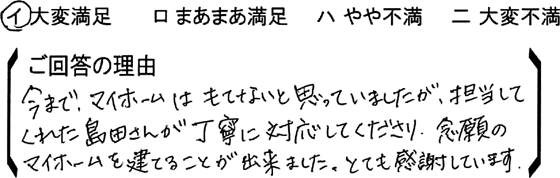 イ 大変満足 ロ まあまあ満足 ハ やや不満 ニ 大変不満
ご回答の理由
今まで、マイホームは もてないと思っていましたが、担当して
くれた島田さんが丁寧に対応してくださり、念願の
マイホームを建てることが出来ました。とても感謝しています。